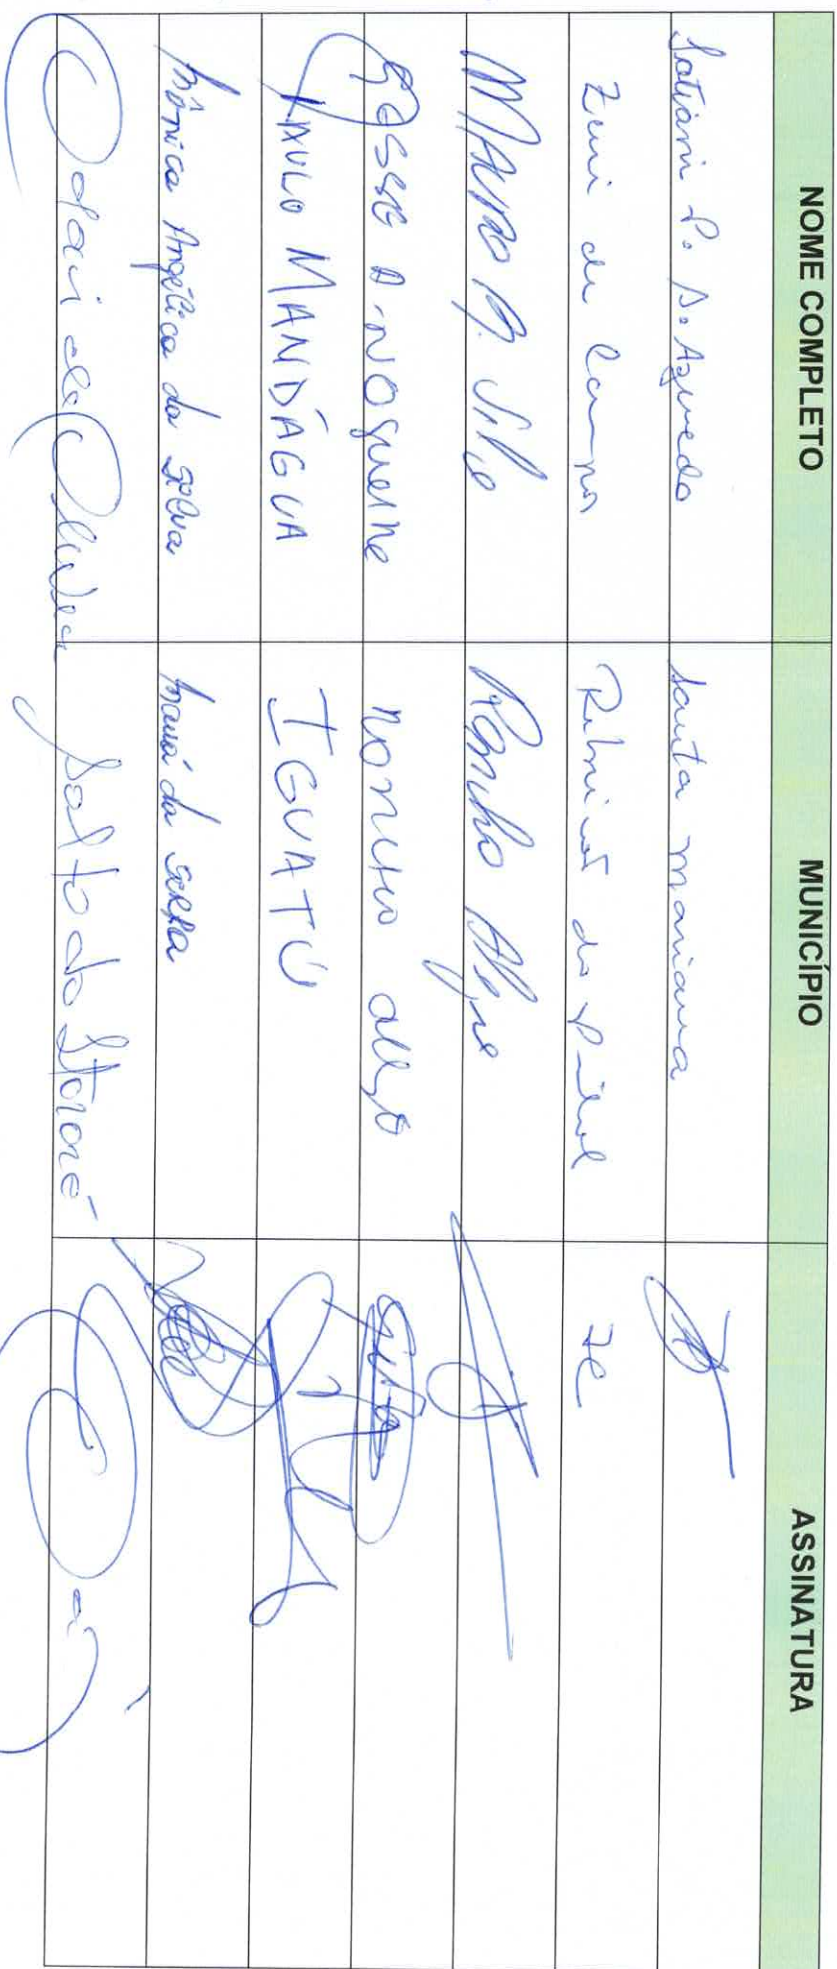 NOME COMPLETO MUNICÍPIO ASSINATURA
Tatiani P. D. Azevedo Santa Mariana
Zeni de Campos Ribeirão do Pinhal ZC
MAURO Silva Rancho Alegre
A. Nogueira Rancho Alegre
PAULO MANDÁGUA IGUATÚ
Mônica Angélica da Silva Mauá da Serra
Odari de Oliveira Salto do Itararé